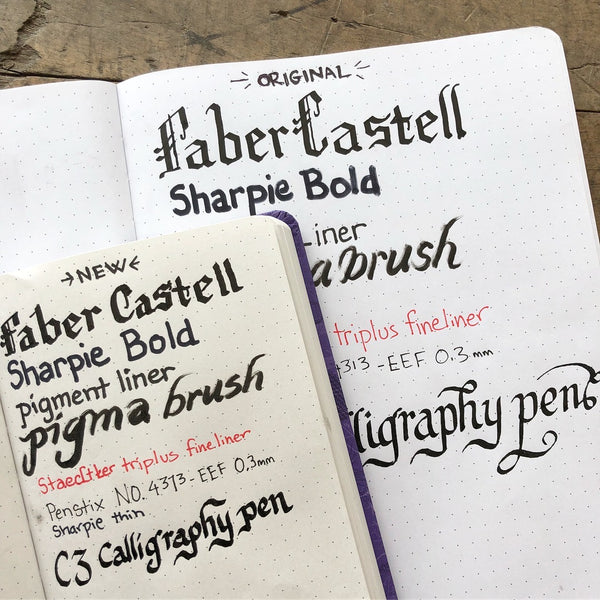 ORIGINAL
Faber Castell
Sharpie Bold
liner
a brush
triplus fineliner
4313 - EEF 0.3mm
lligraphy pens
NEW
Faber Castell
Sharpie Bold
pigment liner
pigma brush
Staedtler triplus fineliner
Penstix NO. 4313 - EEF 0.3mm
Sharpie thin
C3 Calligraphy pen